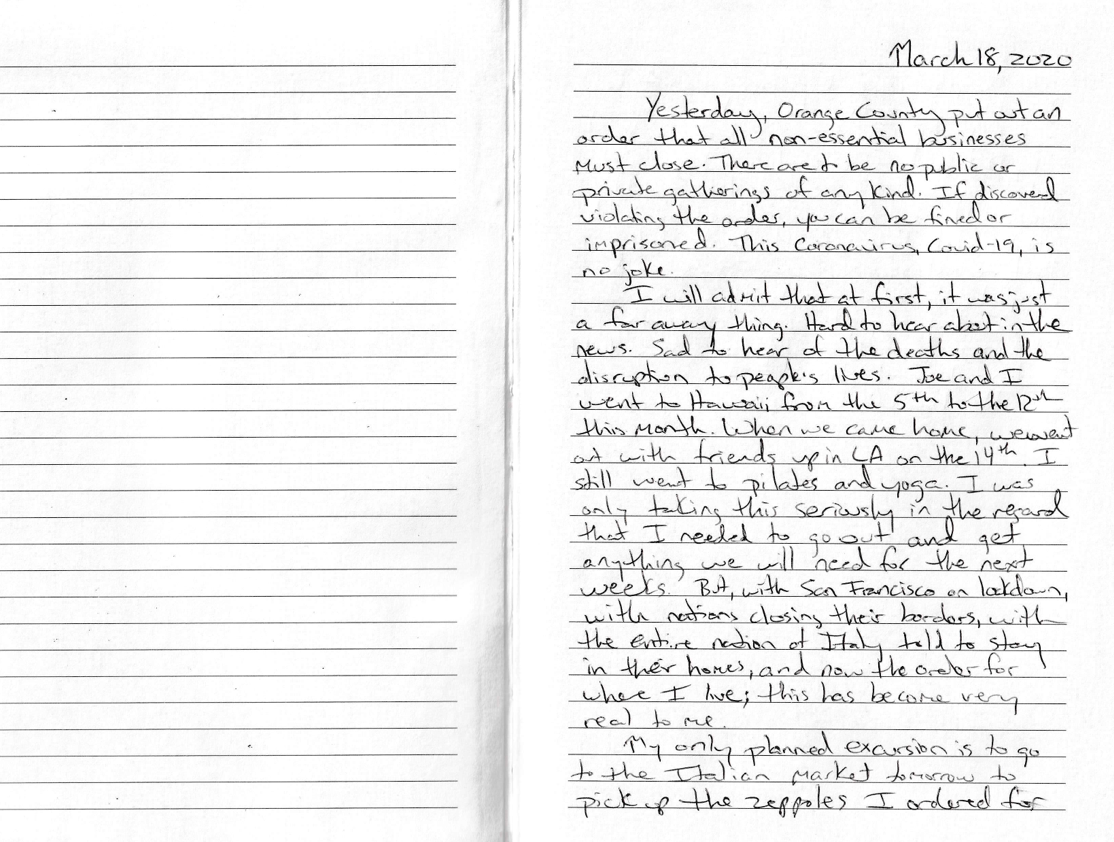 March 18, 2020
Yesterday, Orange County put out an
order that all non-essential businesses
must close. There are to be no public or
private gatherings of any kind. If discovered
violating the order, you can be fined or
imprisoned. This Coronavirus, Covid-19, is
no joke.
I will admit that at first, it was just
a far away thing. Hard to hear about in the
news. Sad to hear of the deaths and the
disruption to people's lives. Joe and I
went to Hawaii from the 5th to the 12th
this month. When we came home, we went
out with friends up in LA on the 14th. I
still went to pilates and yoga. I was
only taking this seriously in the regard
that I needed to go out and get
anything we will need for the next
weeks. But, with San Francisco on lockdown,
with nations closing their borders, with
the entire nation of Italy told to stay
in their homes, and now the order for
where I live; this has become very
real to me.
My only planned excursion is to go
to the Italian market tomorrow to
pick up the zeppoles I ordered for